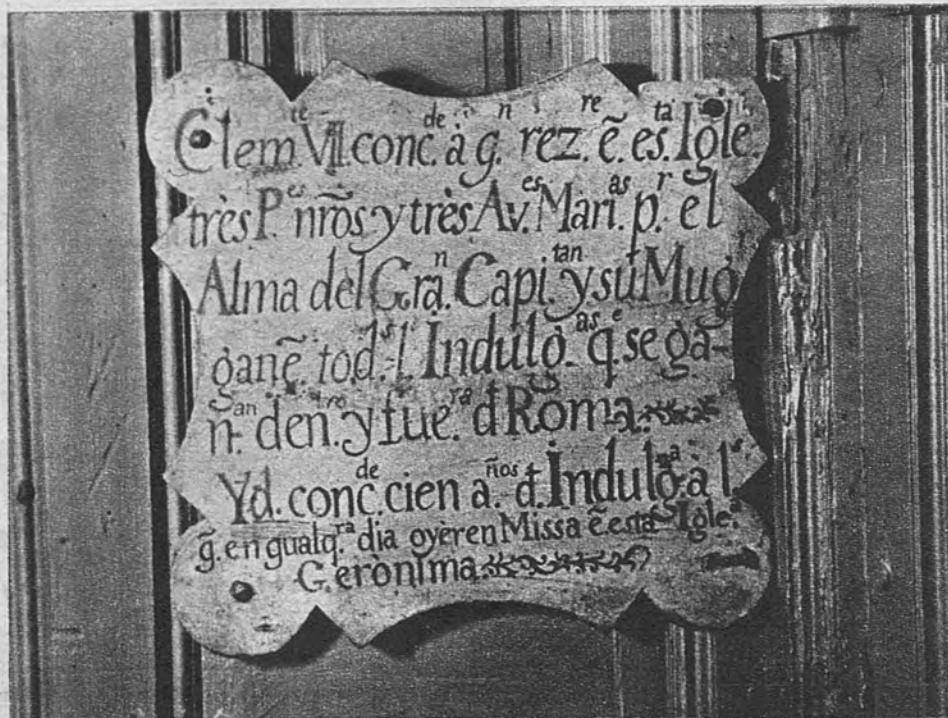 Clem.te VII. conc.de à q.n rez.re ẽ. es.ta Igle.
três P.es nrõs y três Av.es Mari.as p.r el
Alma del Gra.n Capi.tan y su Mug.r
ganẽ. tod.s l.as Indulg.as q.e se gã-
n.an den.tro y fue.ra đ Roma.
Yd. conc.de cien a.ños đ. Indulg.a à l.s
q̃. en qualq.ra dia oyèren Missa ẽ. esta Igle.a
Gerònima.